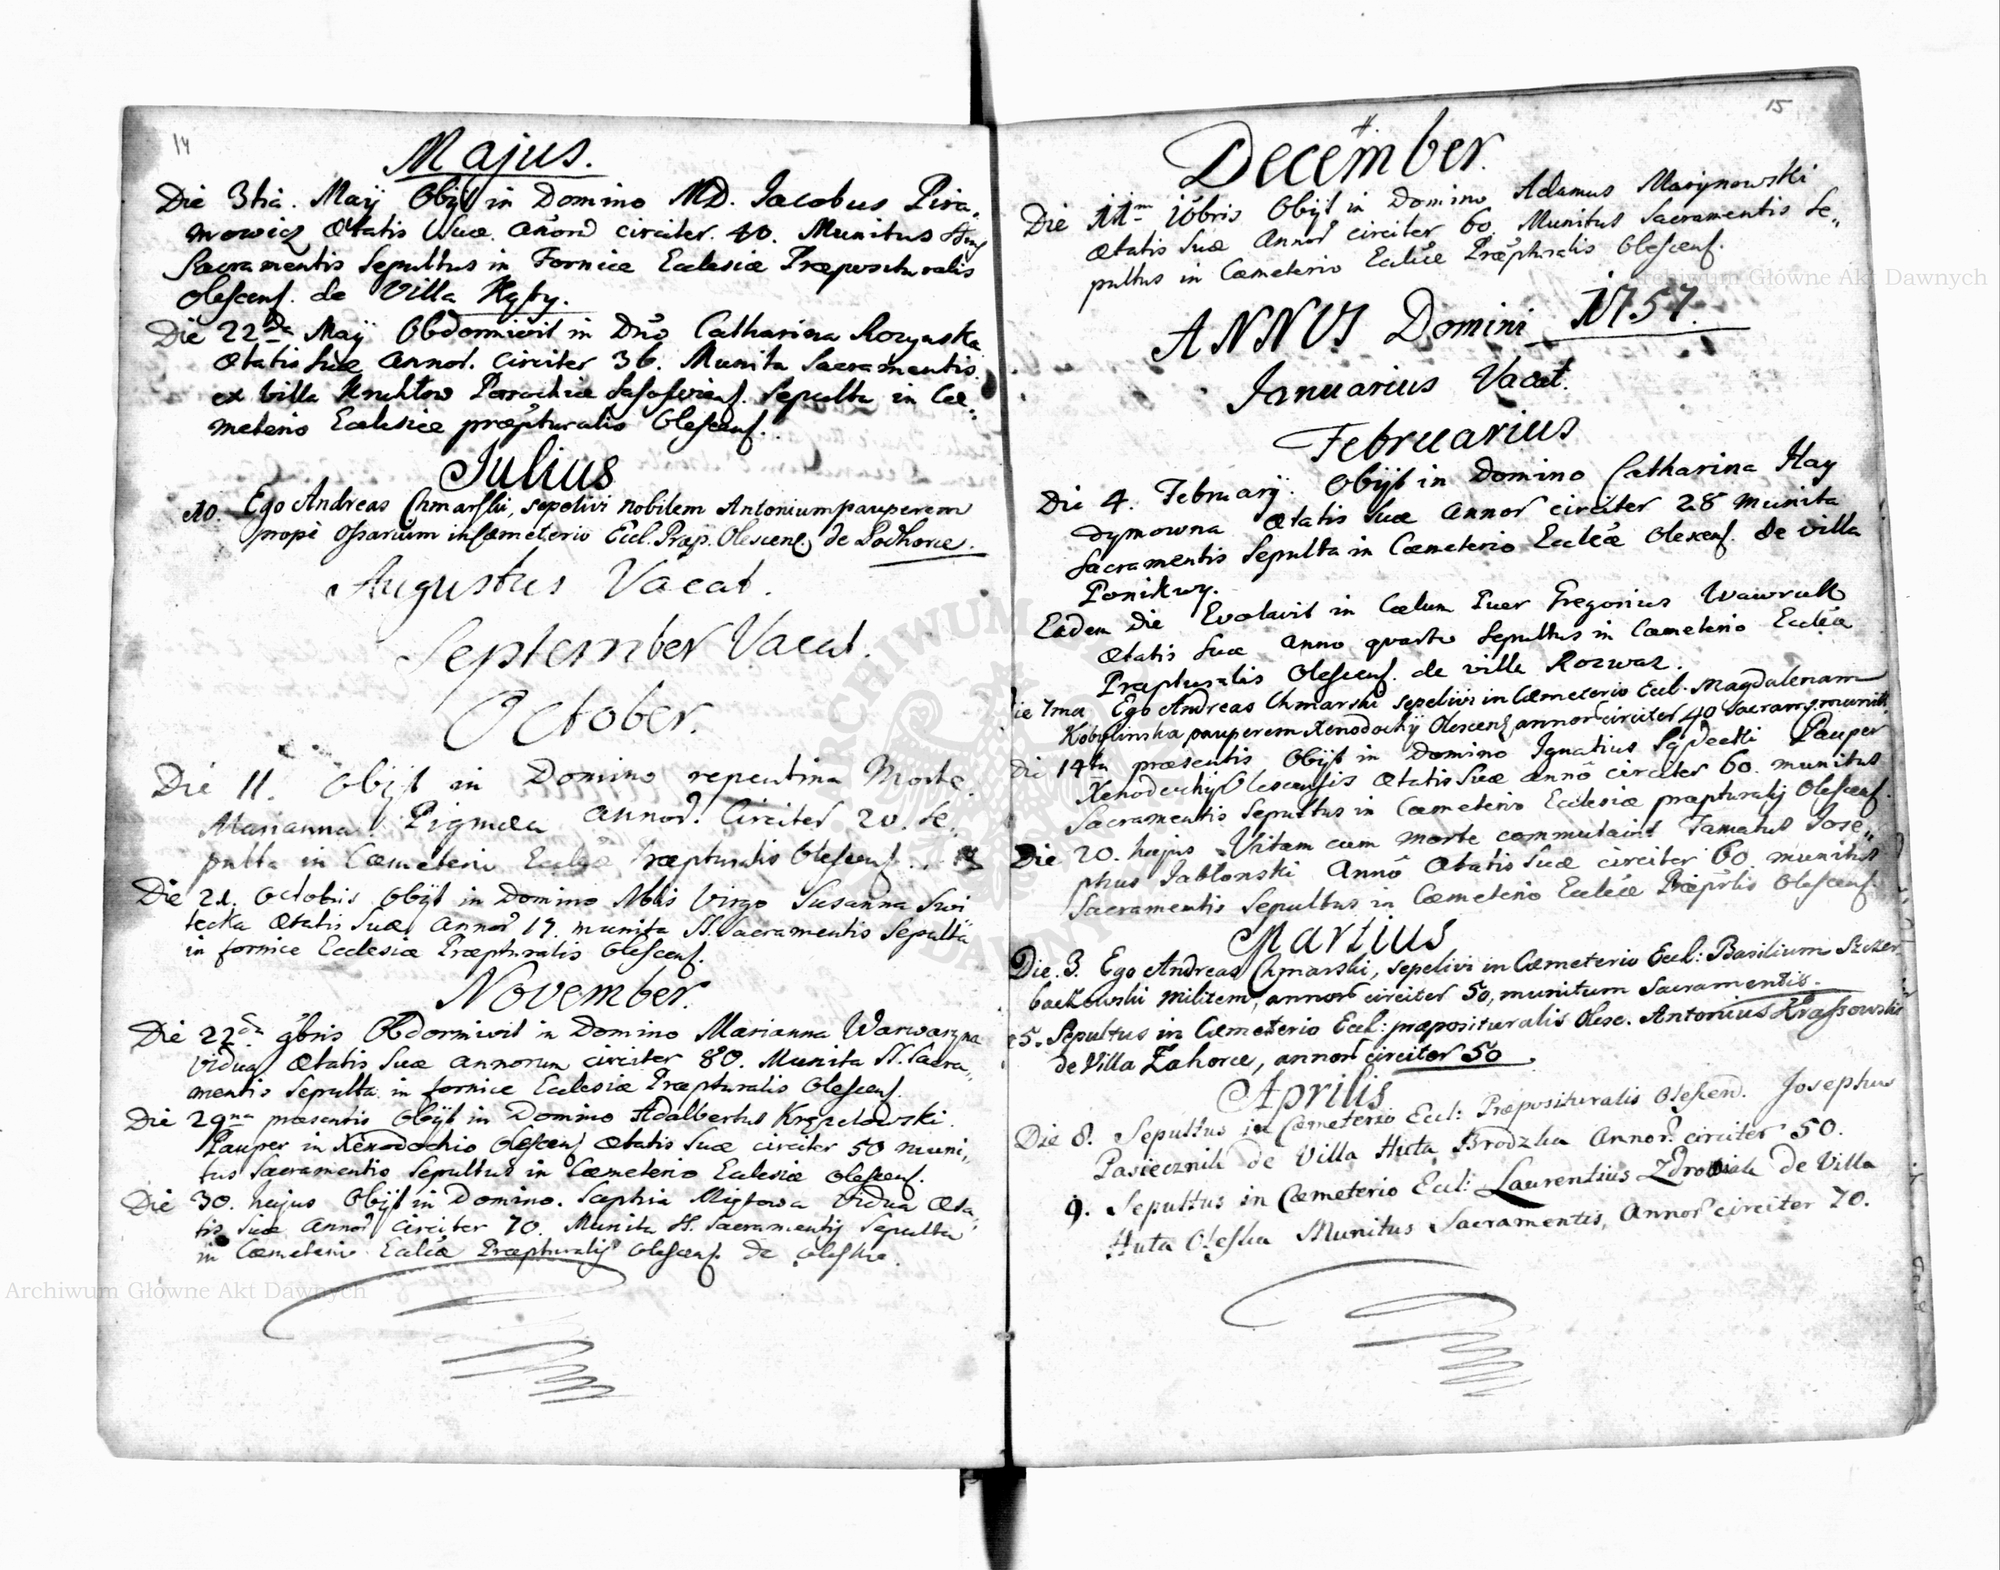 14
Majus.
Die 3tia. Maÿ Obÿt in Domino MD. Iacobus Pira„
mowicz Ætatis Suæ Añord circiter. 40. Munitus
Sacramentis Sepultus in Fornice Ecclesiæ Præpositu ralis
Olescens. de Villa
Die 22da Maÿ Obdormivit in Dno Catharina Rozynska
Ætatis Suæ Annor. Circiter 36. Munita Sacramentis
ex Villa Parochiæ Sepulta in Cæ„
meterio Ecclesiæ præpturalis Olescens.
Julius
Ego Andreas Chmarski, sepelivi nobilem Antonium pauperem
propè Ossarium in Cæmeterio Eccl. Præp. Olescens. de Podhorce.
Augustus Vacat.
September Vacat.
October.
Die 11. Obijt in Domino repentina Morte.
Marianna Pigmæa Annor. Circiter 20. Se„
pulta in Cæmeterio Ecclæ Præpturalis Olescens.
Die 21. Octobris Obÿt in Domino Nblis Virgo Susanna Swi
tecka Ætatis Suæ Annor 17. munita SS. Sacramentis Sepulta
in fornice Ecclesiæ Præpturalis Olescens.
November.
Die 22da 9bris Obdormivit in Domino Marianna Warwarzyna
Vidua Ætatis Suæ Annorum circiter 80. Munita SS. Sacra„
mentis Sepulta in fornice Ecclesiæ Præpturalis Olescens.
Die 29na præsentis Obÿt in Domino Adalbertus
Pauper in Xenodochio Olescens Ætatis Suæ circiter 50 muni„
tus Sacramentis Sepultus in Cæmeterio Ecclesiæ Olescens.
Die 30. hujus Obÿt in Domino. Sophia Vidua Æta„
tis Suæ Annor circiter 70. Munita SS. Sacramentij Sepulta
in Cæmeterio Ecclæ Præpturalis Olescens. de Oleska.
15
December.
Die 11m Xbris Obÿt in Domino Adamus Marynowski
Ætatis Suæ Annor circiter 60. Munitus Sacramentis Se„
pultus in Cæmeterio Ecclæ Præpturalis Olescens.
ANNUS Domini 1757.
Ianuarius Vacat.
Februarius
Die 4. Februarÿ. Obÿt in Domino Catharina Hay
dymowna Ætatis Suæ Annor circiter 28 munita
Sacramentis Sepulta in Cæmeterio Ecclæ Olescens. de villa
Ponikwy.
Eadem die Evolavit in Cælum Puer Gregorius Wawruk
Ætatis Suæ Anno quarto Sepultus in Cæmeterio Ecclæ
Præpturalis Olescens. de villa Rozwaz.
Die 7ma Ego Andreas Chmarski sepelivi in Cæmeterio Eccl. Magdalenam
Kobylinska pauperem Xenodochÿ Olescens annor circiter 40 Sacram: munit.
Die 14ta præsentis Obÿt in Domino Ignatius Pauper
Xenodochÿ Olescensis Ætatis Suæ annõ circiter 60. munitus
Sacramentis Sepultus in Cæmeterio Ecclesiæ præpturalij Olescens.
Die 20. hujus Vitam cum morte commutavit Famatus Jose„
phus Iablonski Annõ Ætatis Suæ circiter 60. munitus
Sacramentis Sepultus in Cæmeterio Ecclæ Olescens.
Martius
Die. 3. Ego Andreas Chmarski, sepelivi in Cæmeterio Eccl: Basilium Szczer
baczowski militem, annor circiter 50, munitum Sacramentis.
5. Sepultus in Cæmeterio Eccl: præposituralis Olesc. Antonius Krassowski
de Villa Zahorce, annor circiter 50.
Aprilis
Die 8. Sepultus in Cæmeterio Eccl: Præposituralis Olescen. Josephus
Pasiecznik de Villa Huta Brodzka Annor. circiter 50.
9. Sepultus in Cæmeterio Eccl: Laurentius de Villa
Huta Oleska Munitus Sacramentis, Annor circiter 70.
Archiwum Główne Akt Dawnych
Archiwum Główne Akt Dawnych